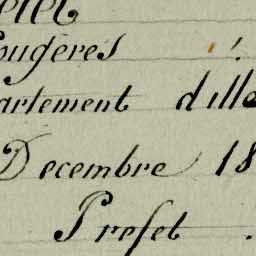 ougeres
artement dille
Decembre 18
Prefet .